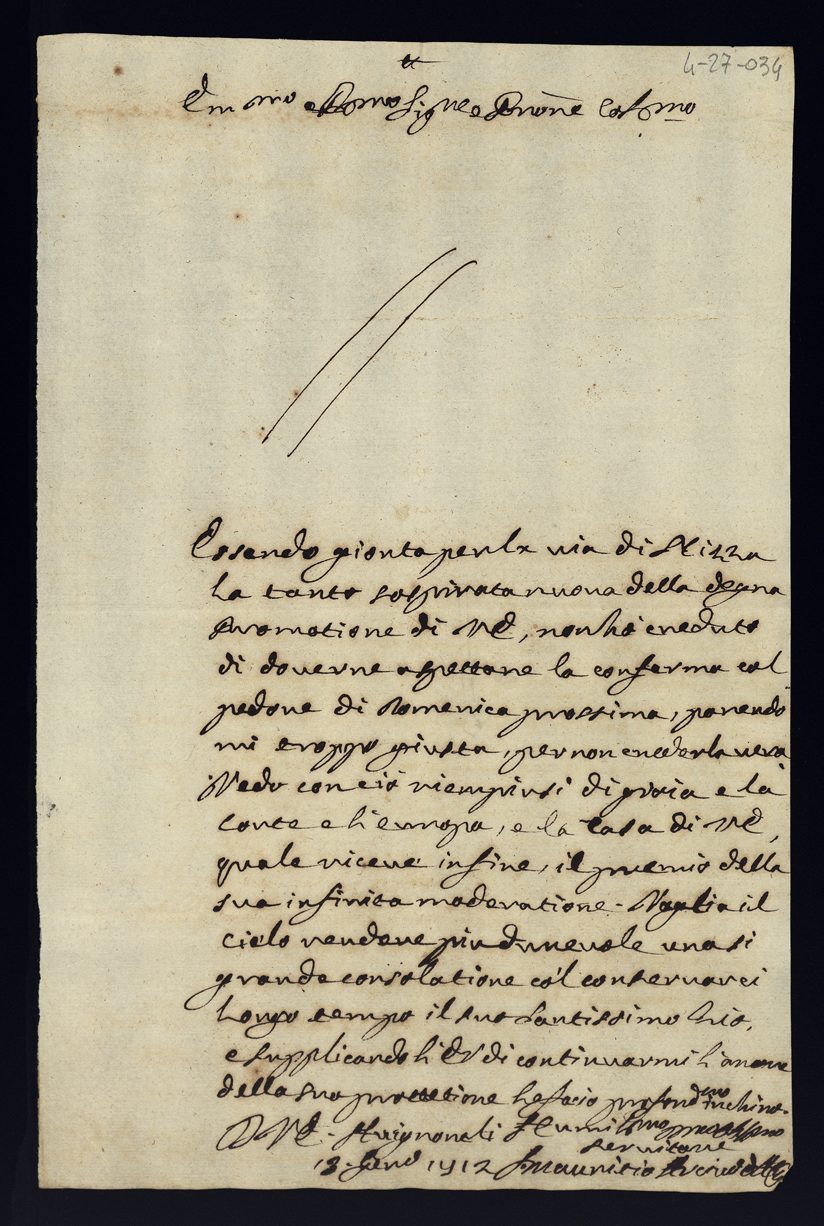 4-27-034
Em.mo e R.mo Sig.re e Prone Col.mo
Essendo gionta per la via di Nizza
la tanto sospirata nuova della degna
Promotione di V.E, non hò creduto
di doverne aspettare la conferma col
pedone di Domenica prossima, parendo
mi troppo giusta, per non crederla vera
Vedo con ciò riempirsi di gioia e la
Corte e l'europa, e la Casa di V.E,
quale riceve infine, il premio della
sua infinita moderatione. Voglia il
Cielo rendere più durevole una sì
grande consolatione co'l conservarci
longo tempo il suo Santissimo Zio,
e supplicando l'E.V di continuarmi l'onore
della sua protettione le facio profond.mo inchino.
D V.E. Avignon alli Humiliss.mo
servitore
13 Gen.o 1712